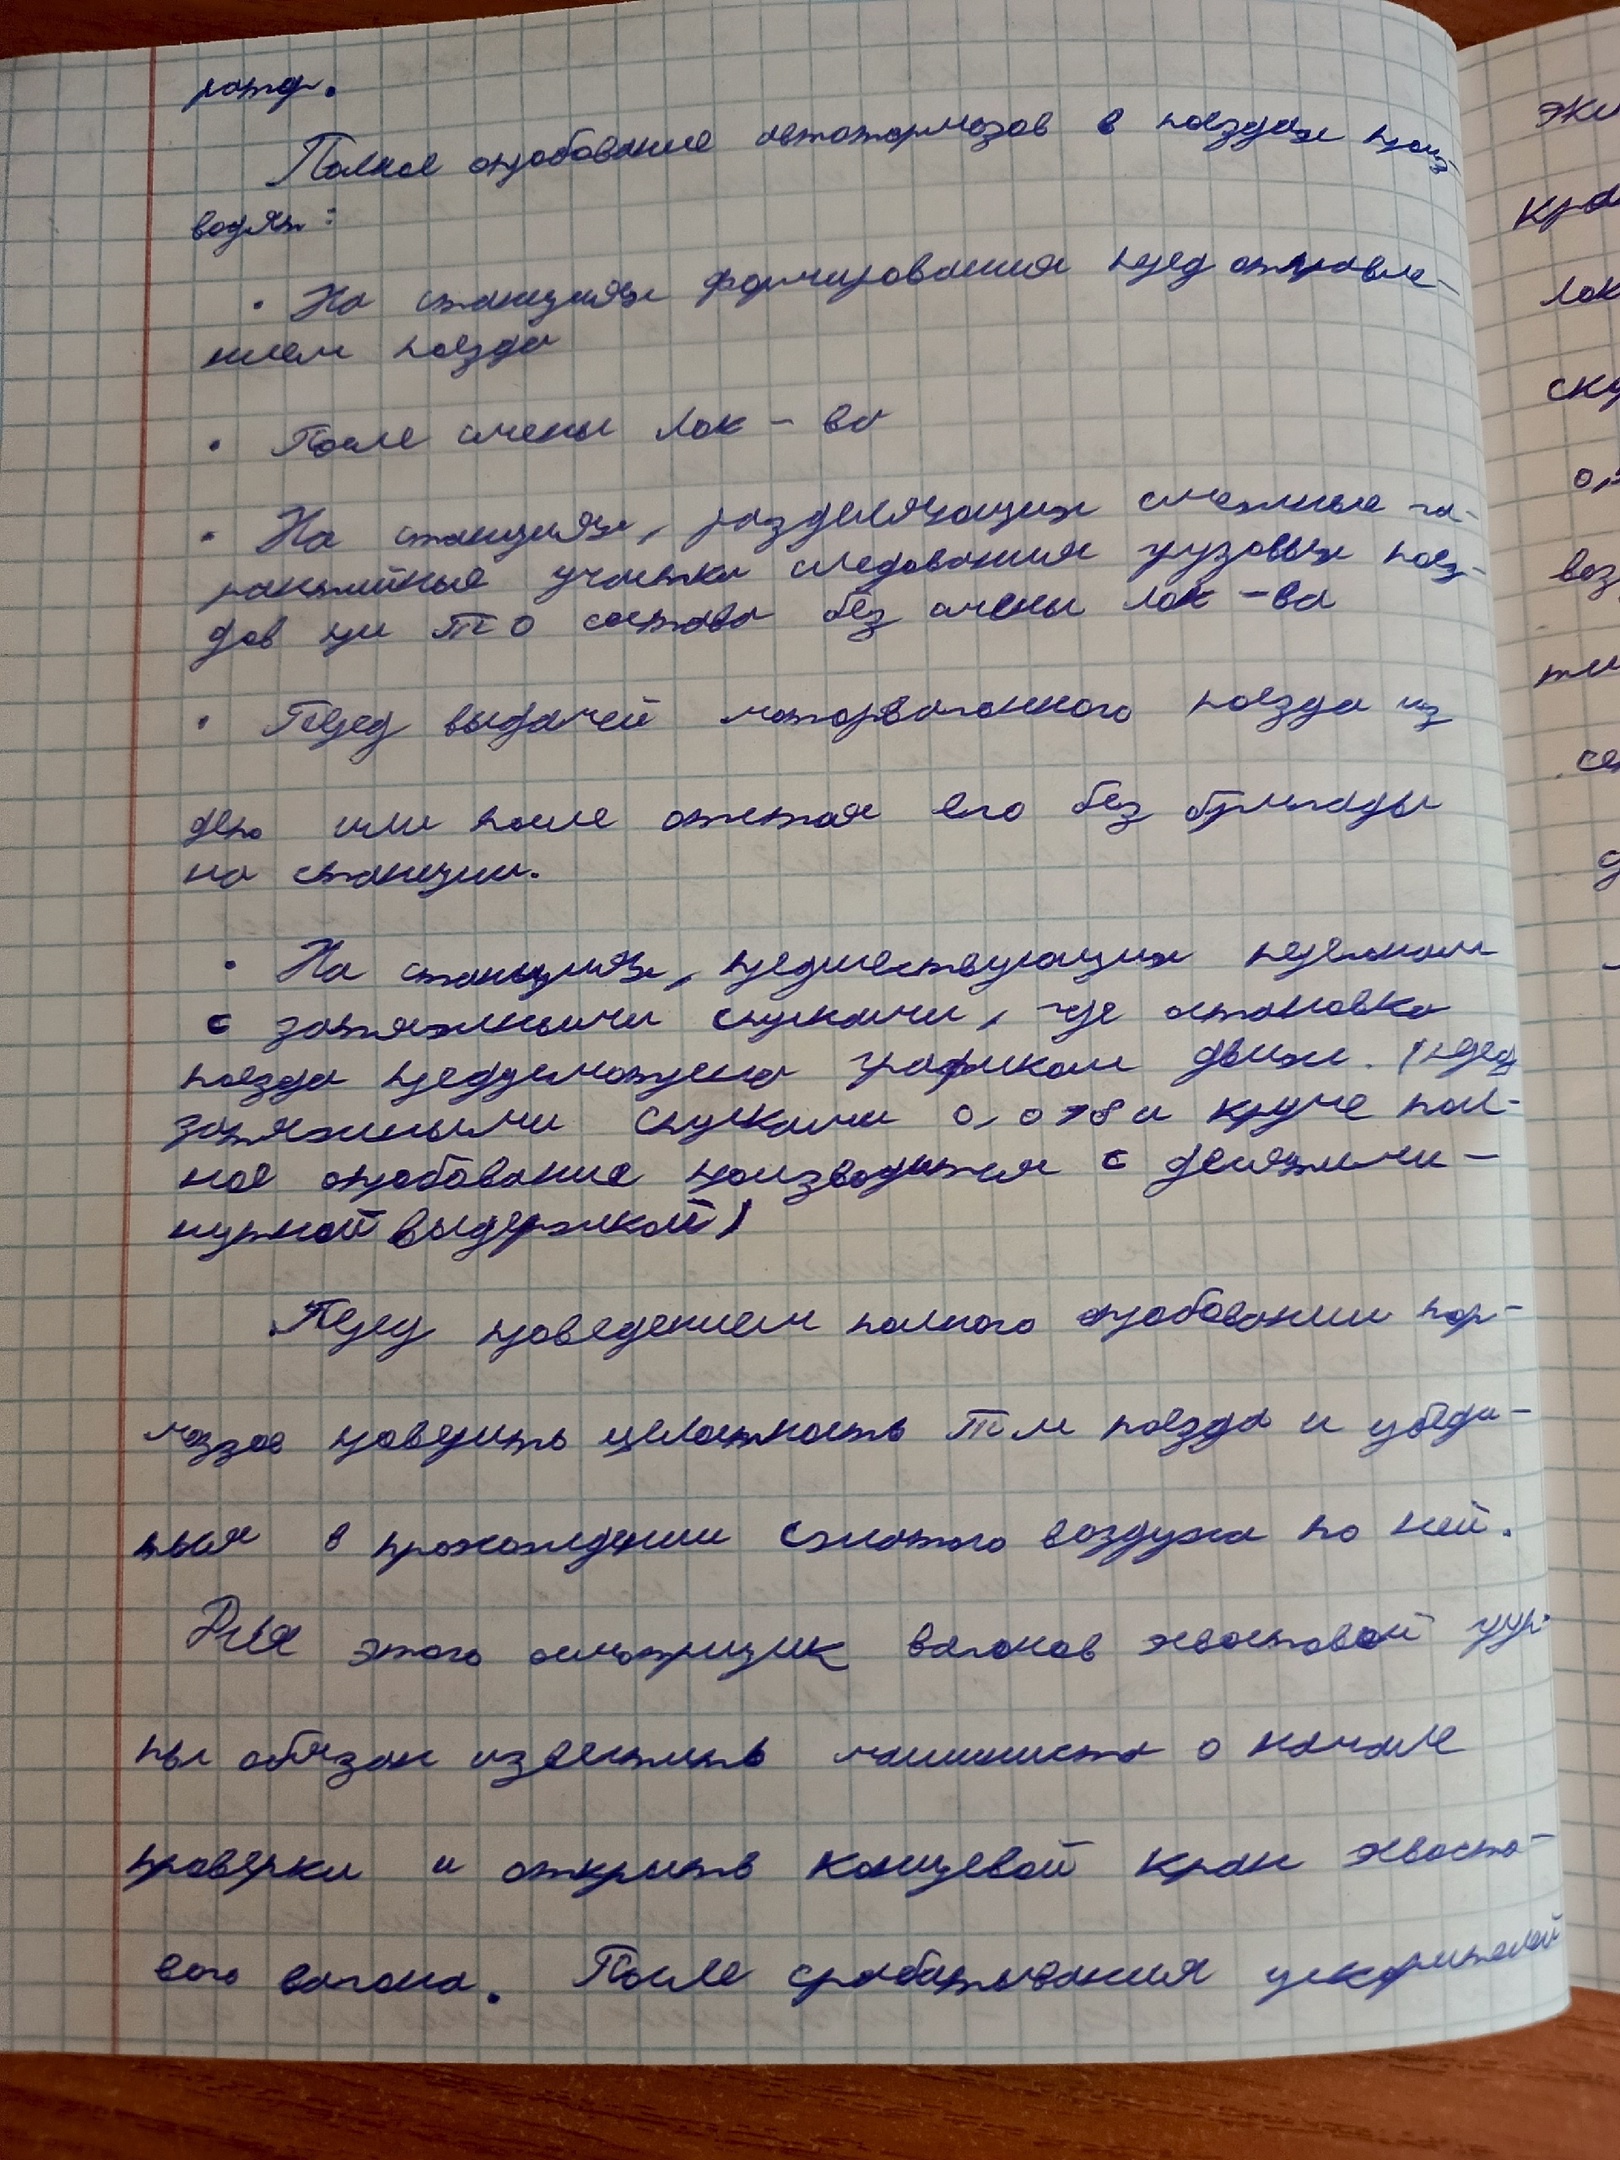 Полное опробование автотормозов в поездах произ-
водят:
• На станциях формирования перед отправле-
нием поезда
• После смены лок-ва
• На станциях, разделяющих смежные га-
рантийные участки следования грузовых поез-
дов при ТО состава без смены лок-ва
• Перед выдачей моторвагонного поезда из
депо или после отстоя его без бригады
на станции.
• На станциях, предшествующих перегонам
с затяжными спусками, где остановка
поезда предусмотрена графиком движ. (перед
затяжными спусками 0,018 и круче пол-
ное опробование производится с десятими-
нутной выдержкой)
Перед проведением полного опробовании тор-
мозов проверить целостность ТМ поезда и убеди-
ться в прохождении сжатого воздуха по ней.
Для этого осмотрщик вагонов хвостовой груп-
пы обязан известить машиниста о начале
проверки и открыть концевой кран хвосто-
вого вагона. После срабатывания ускорителей
эки
кра
лок
ску
воз